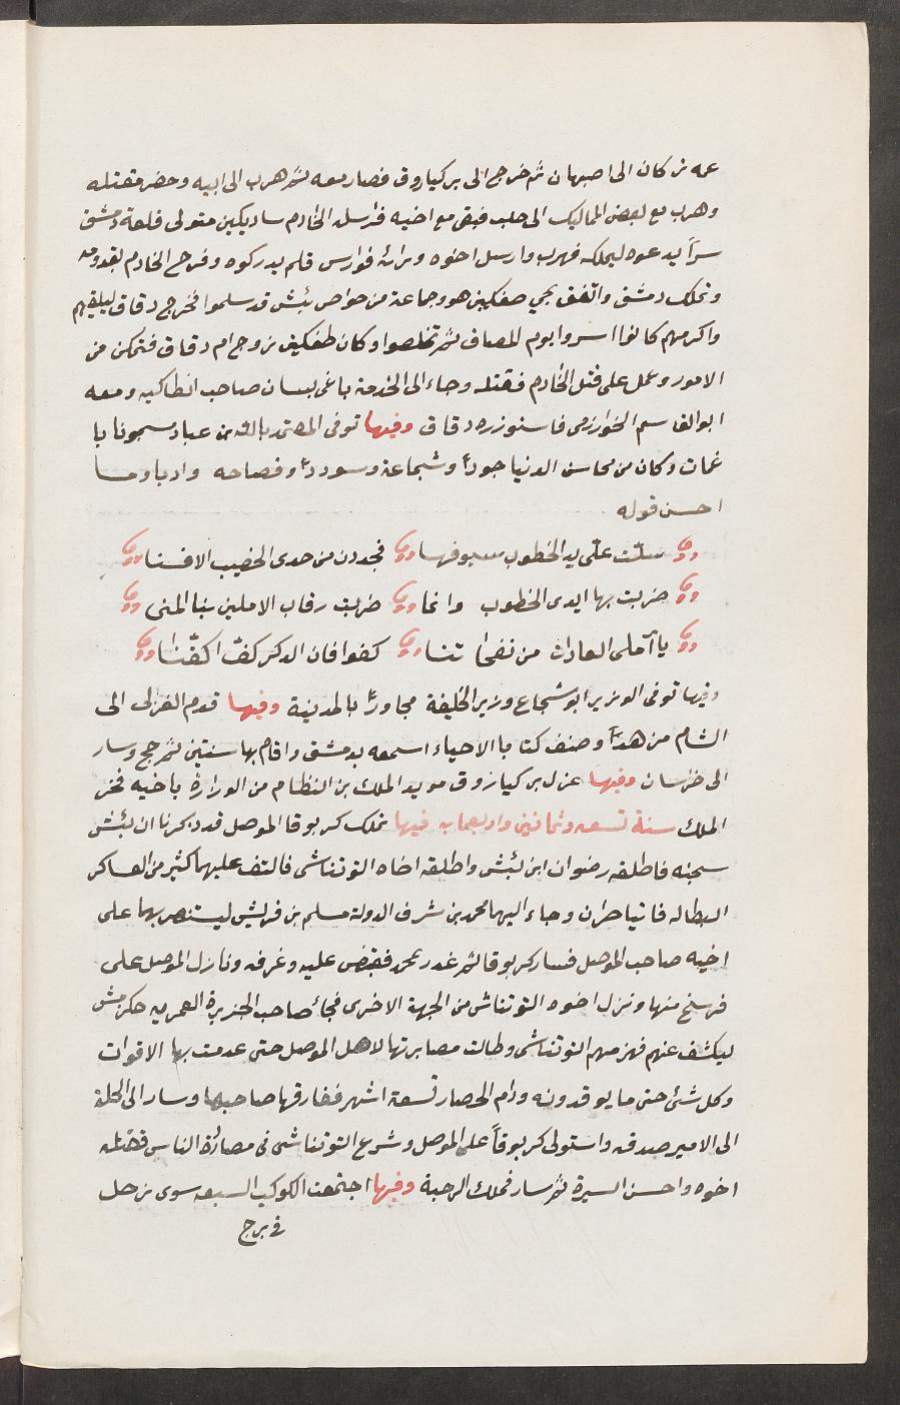 عمه تركان الى اصبهان ثم خرج الى بركياروق فصار معه ثم هرب الى ابيه وحضر مقتله
وهرب مع بعض المماليك الى حلب فبقى مع اخيه فراسله الخادم ساديكين متولى قلعة دمشق
سراً يدعوه ليملكه فهرب وارسل اخوه وراءه فوارس فلم يدركوه وفرح الخادم بقدومه
وتملك دمشق واتفق مجى طغتكين هو وجماعة من خواص تتش قد سلموا فخرج دقاق ليلقيهم
واكرمهم كانوا اسروا يوم المصاف ثم تخلصوا وكان طغتكين زوج ام دقاق فتمكن من
الامور وعمل على قتل الخادم فقتله وجاء الى الخدمة باغى بسان صاحب انطاكيه ومعه
ابو القاسم الخوارزمى فاستوزره دقاق وفيها توفى المعتمد بالله بن عباد مسجونا با
غمات وكان من محاسن الدنيا جوداً وشجاعة وسودداً وفصاحه وادبا وما
احسن قوله
سلّت علّى يد الخطوب سيوفها فجددن من جدى الخصيب الافنا
ضربت بها ايدى الخطوب وانما ضربت رقاب الاملين بنا المنى
يا آملى العادات من نفحاتنا كفوا فان الدكر كفّ اكفّنا
وفيها توفى الوزير ابو شجاع وزير الخليفة مجاوراً بالمدينة وفيها قدم الغزلى الى
الشام متزهداً وصنف كتاب الاحياء اسمعه بدمشق واقام بها سنتين ثم حج وسار
الى خراسان وفيها عزل بركيازوق مويد الملك بن النظام من الوزارة باخيه فخر
الملك سنة تسعه وثمانين واربعمايه فيها تملك كربوقا الموصل قد ذكرنا ان تتش
سجنه فاطلقه رضوان ابن تتش واطلقه اخاه التونتاشى فالتف عليهما كثير من العساكر
البطاله فاتيا حران وجاء اليهما محمد بن شرف الدولة مسلم بن قريش ليستنصر بهما على
اخيه صاحب الموصل فسار كربوقا ثم غدر بمحمد فقبض عليه وغرقه ونازل الموصل على
فرسخ منها ونزل اخوه التونتاش من الجهة الاخرى فجاء صاحب الجزيرة العمريه جكرمش
ليكشف عنهم فهزمهم التونتاشى وطالت مصابرتها لاهل الموصل حتى عدمت بها الاقوات
وكل شئ حتى ما يوقدونه ودام الحصار تسعة اشهر ففارقها صاحبها وسار الى الحلة
الى الامير صدقه واستولى كربوقاً على الموصل وشرع التونتاشى فى مصادرة الناس فقتله
اخوه واحسن السيرة ثم سار فملك الرحبة وفيها اجتمعت الكوكب السبعه سوى زحل
فى برج